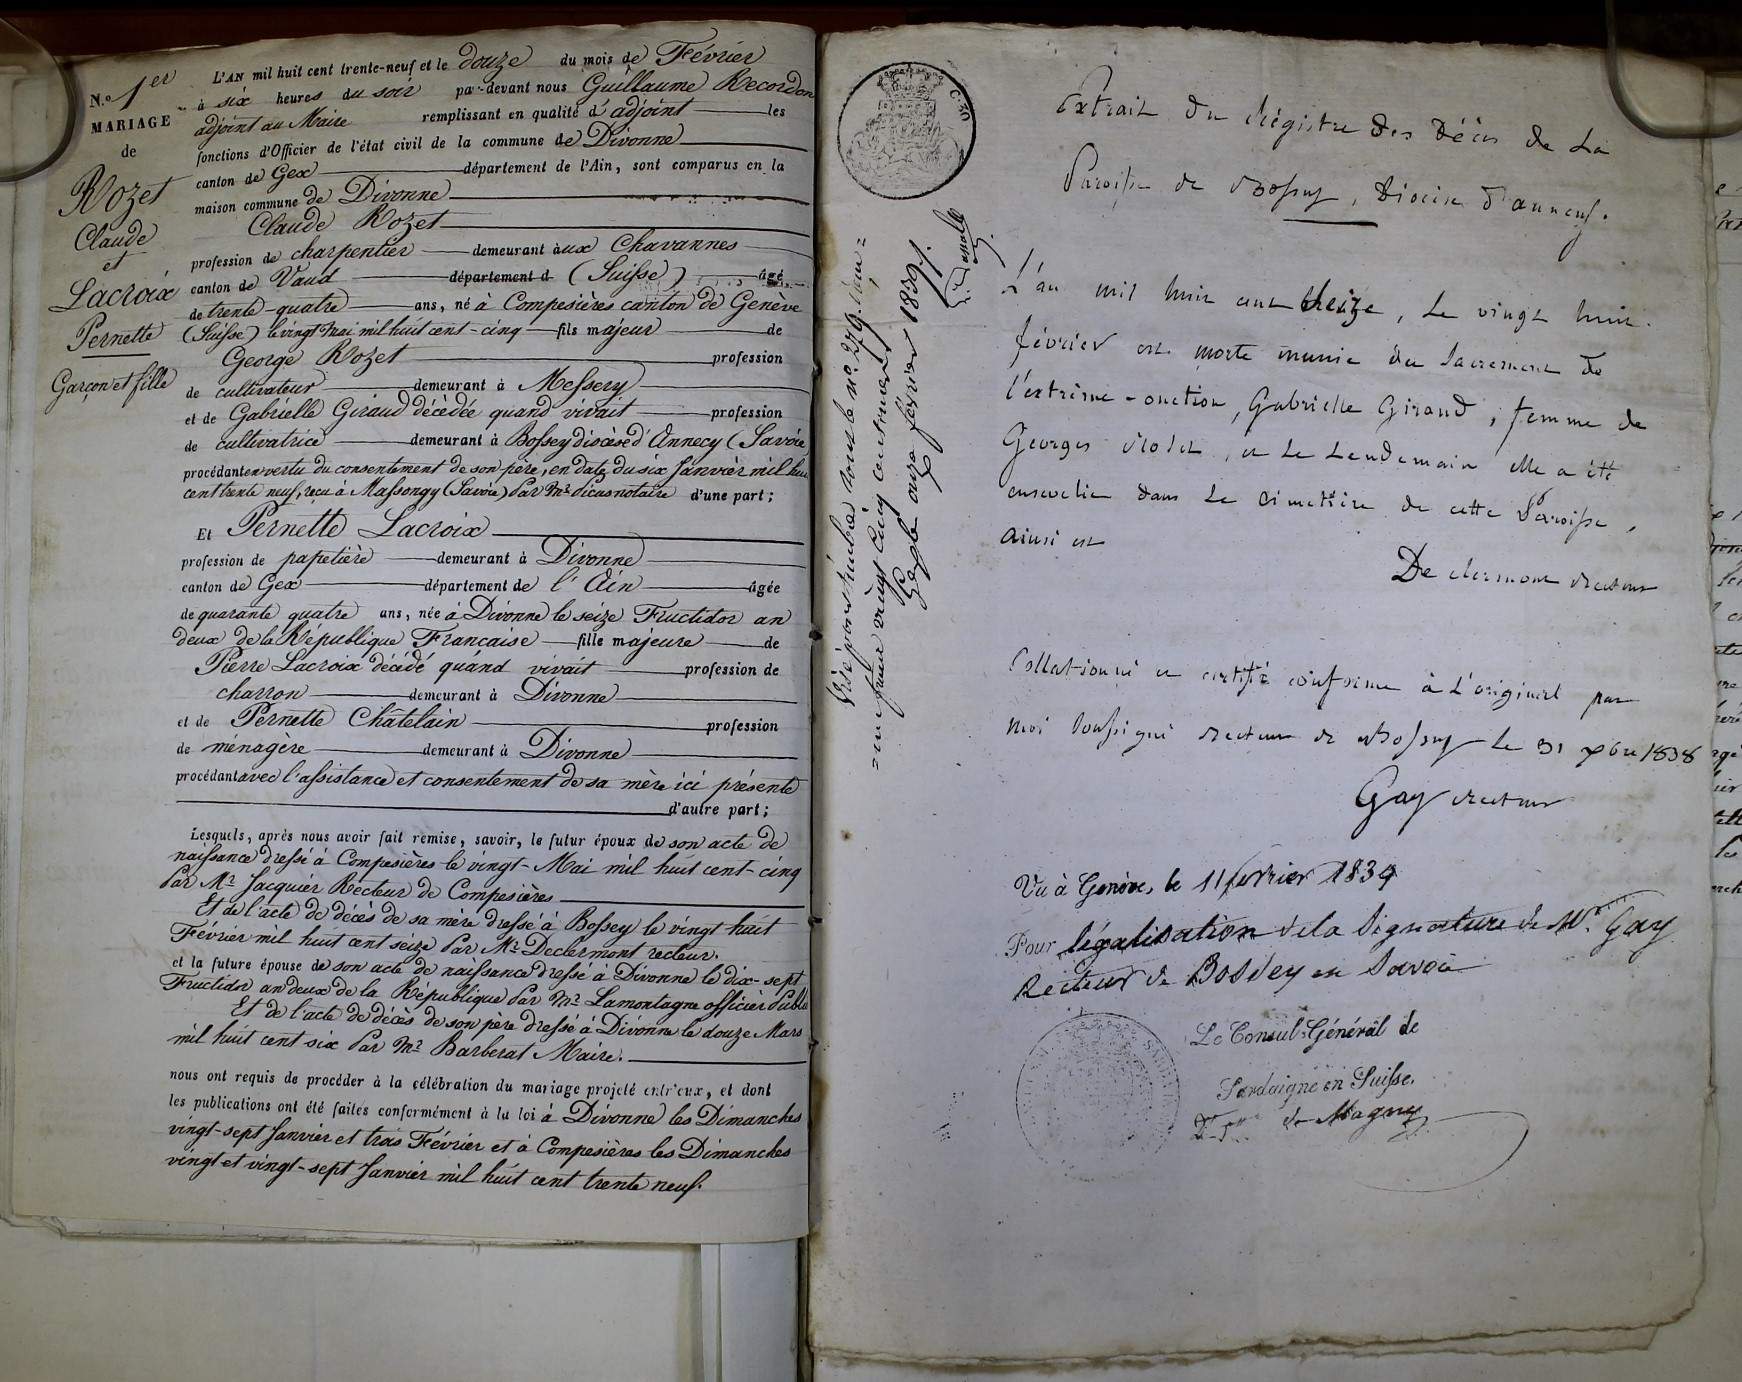 N.º 1er
MARIAGE
de
Rozet
Claude
et
Lacroix
Pernette
Garçon et fille
L'AN mil huit cent trente-neuf et le douze du mois de Février
à six heures du soir par-devant nous Guillaume Recordon
adjoint au Maire remplissant en qualité d'adjoint les
fonctions d'Officier de l'état civil de la commune de Divonne
canton de Gex département de l'Ain, sont comparus en la
maison commune de Divonne
Claude Rozet
profession de charpentier demeurant aux Chavannes
canton de Vaud département d (Suisse) âgé
de trente-quatre ans, né à Compesières canton de Genève
(Suisse) le vingt Mai mil huit cent-cinq fils majeur de
George Rozet profession
de cultivateur demeurant à Messery
et de Gabrielle Giraud décédée quand vivait profession
de cultivatrice demeurant à Bossey diocèse d'Annecy (Savoie
procédant en vertu du consentement de son père, en date du six Janvier mil huit
cent trente neuf, reçu à Massongy (Savoie) par Mr. notaire d'une part;
Et Pernette Lacroix
profession de papetière demeurant à Divonne
canton de Gex département de l'Ain âgée
de quarante quatre ans, née à Divonne le seize Fructidor an
deux de la République Française fille majeure de
Pierre Lacroix décédé quand vivait profession de
charron demeurant à Divonne
et de Pernette Châtelain profession
de ménagère demeurant à Divonne
procédant avec l'assistance et consentement de sa mère ici présente
d'autre part;
Lesquels, après nous avoir fait remise, savoir, le futur époux de son acte de
naissance dressé à Compesières le vingt-Mai mil huit cent-cinq
par Mr. Jacquier Recteur de Compesières
Et de l'acte de décès de sa mère dressé à Bossey le vingt huit
Février mil huit cent seize par Mr. Declermont recteur.
et la future épouse de son acte de naissance dressé à Divonne le dix-sept
Fructidor an deux de la République par Mr. Lamontagne officier public
Et de l'acte de décès de son père dressé à Divonne le douze Mars
mil huit cent six par Mr. Barberat Maire.
nous ont requis de procéder à la célébration du mariage projeté entr'eux, et dont
les publications ont été faites conformément à la loi à Divonne les Dimanches
vingt-sept Janvier et trois Février et à Compesières les Dimanches
vingt et vingt-sept Janvier mil huit cent trente neuf.
C. 30
Visé pour timbre sous le no. 279.
vingt cinq centimes
Gex le onze février 1839.
Extrait du Régistre des Décès de La
Paroisse de Bossey, Diocèse d'annecy.
L'an mil huit cent seize, Le vingt huit
février est morte munie du Sacrement de
l'extrême-onction, Gabrielle Giraud, femme de
Georges Rozet, et Le Lendemain elle a été
ensevelie dans Le cimetière de cette Paroisse,
ainsi est
De clermont recteur
Collationné et certifié conforme à L'original par
moi soussigné recteur de Bossey Le 31 xbre 1838
Gay recteur
Vu à Genève, le 11 février 1839
Pour légalisation de la Signature de Mr. Gay
Recteur de Bossey en Savoie
Le Consul-Général de
Sardaigne en Suisse.
de Magny